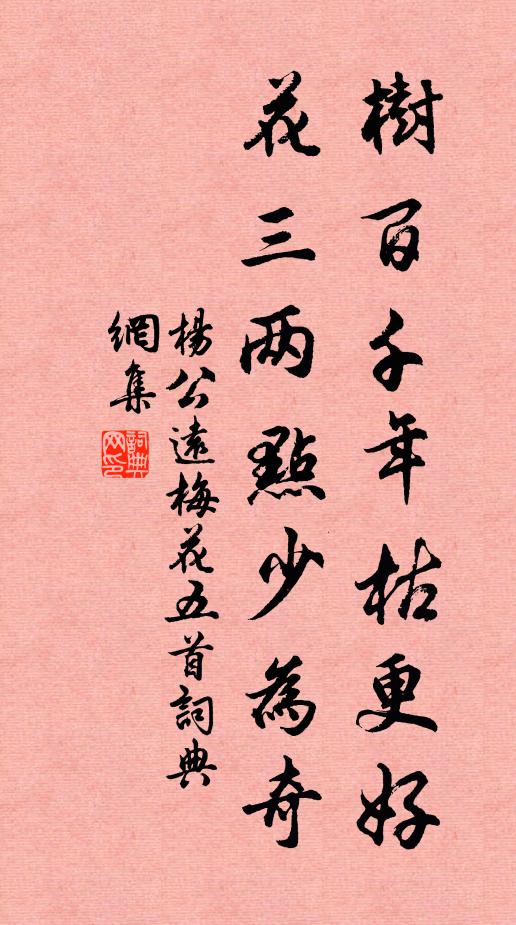 樹百千年枯更好
花三两點少為奇
楊公遠梅花五首詞典
網集
詞典網印